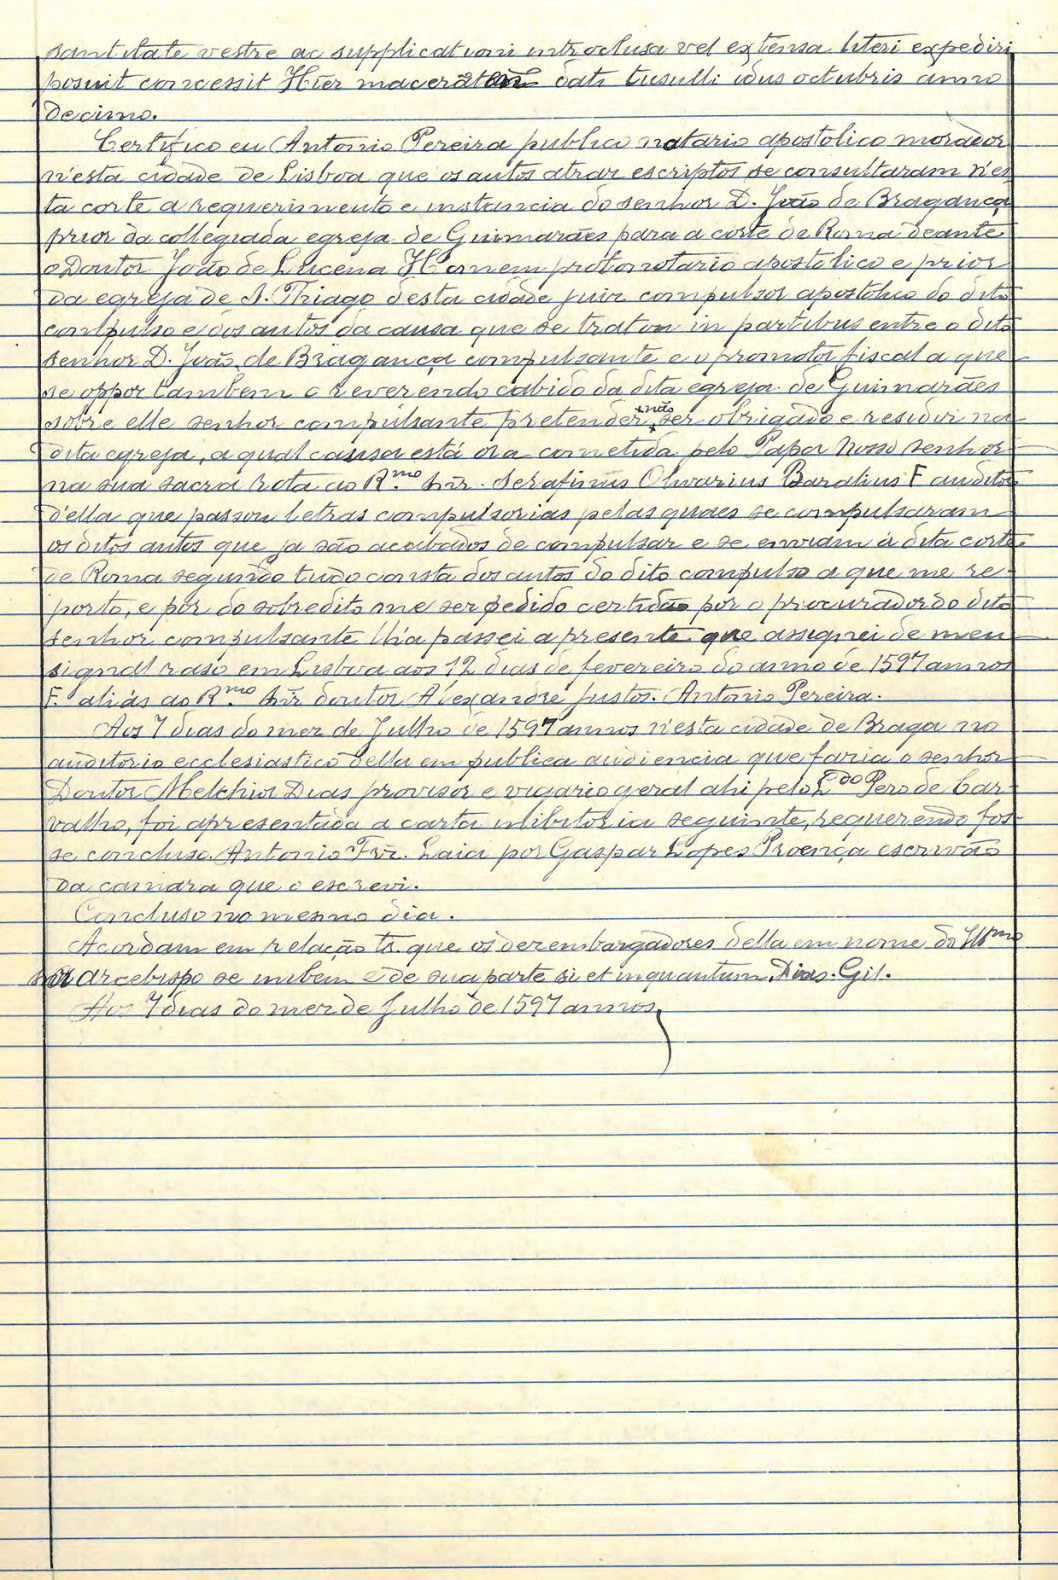 santitate vestre ac supplicationi introclusa vel extensa literi expediri
posuit concessit Hier macerat dati tusulli idus octubris anno
decimo.
Certifico eu Antonio Pereira publico notario apostolico morador
n'esta cidade de Lisboa que os autos atraz escriptos se consultaram n'es
ta corte a requerimento e instancia do senhor D. João de Bragança
prior da collegiada egreja de Guimarães para a corte de Roma deante
o Doutor João de Lucena Homem protonotario apostolico e prior
da egreja de S. Thiago desta cidade juiz compulsor apostolico do dito
compulso e dos autos da causa que se tratou in partibus entre o dito
senhor D. João de Bragança compulsante e o promotor fiscal a que
se oppoz tambem o reverendo cabido da dita egreja de Guimarães
sobre elle senhor compulsante pretender não ser obrigado e residir na
dita egreja, a qual causa está ora cometida pelo Papa nosso senhor
na sua sacra rota ao R.mo snr. Serafinus Olivarius Baralius F auditor
d'ella que passou letras compulsorias pelas quaes se compulsaram
os ditos autos que ja são acabados de compulsar e se enviam á dita corte
de Roma segundo tudo consta dos autos do dito compulso a que me re-
porto, e por do sobredito me ser pedido certidão por o procurador do dito
senhor compulsante lh'a passei a presente que assignei de meu
signal raso em Lisboa aos 12 dias de fevereiro do anno de 1597 annos
F. aliás ao R.mo snr doutor Alexandre Justos. Antonio Pereira.
Aos 7 dias do mez de Julho de 1597 annos n'esta cidade de Braga no
auditorio ecclesiastico della em publica audiencia que fazia o senhor
Doutor Melchior Dias provisor e vigario geral ahi pelo L.do Pero de Car-
valho, foi apresentada a carta inibitoria seguinte, requerendo fos-
se concluso Antonio Frz. Laia por Gaspar Lopes Proença escrivão
da camara que o escrevi.
Concluso no mesmo dia.
Acordam em relação ts. que os dezembargadores della em nome do Ill.mo
snr arcebispo se inibem e de sua parte si et inquantum Dias. Gil.
Aos 7 dias do mez de Julho de 1597 annos,